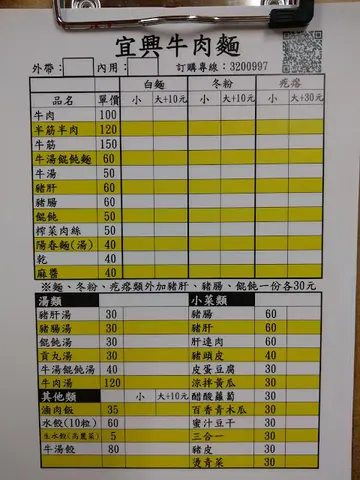 宜興牛肉麵
外帶： 內用： 訂購專線：3200997
白麵 冬粉 疙瘩
品名 單價 小 大+10元 小 大+10元 小 大+30元
牛肉 100
半筋半肉 120
牛筋 150
牛湯餛飩麵 60
牛湯 50
豬肝 60
豬腸 60
餛飩 50
榨菜肉絲 50
陽春麵(湯) 40
乾 40
麻醬 40
※麵、冬粉、疙瘩類外加豬肝、豬腸、餛飩一份各30元
湯類 小菜類
豬肝湯 30 豬腸 60
豬腸湯 30 豬肝 60
餛飩湯 30 肝連肉 60
貢丸湯 30 豬頭皮 40
牛湯餛飩湯 40 皮蛋豆腐 30
牛肉湯 120 涼拌黃瓜 30
其他類 小 大+10元 醋酸蘿蔔 30
滷肉飯 35 百香青木瓜 30
水餃(10粒) 60 蜜汁豆干 30
生水餃(高麗菜) 5 三合一 30
牛湯餃 80 豬皮 30
燙青菜 30